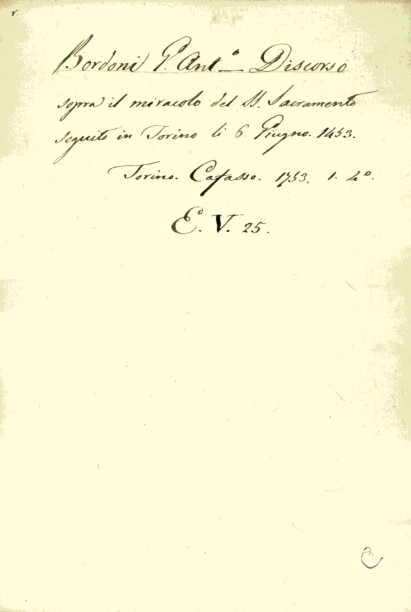 Bordoni P. Ant.º Discorso
sopra il miracolo del SS. Sacramento
seguito in Torino li 6. Giugno. 1453.
Torino. Cafasso. 1753. 1. 4º.
E. V. 25.